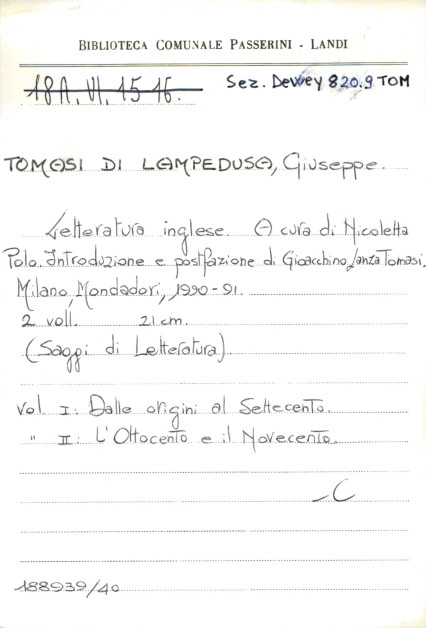 BIBLIOTECA COMUNALE PASSERINI - LANDI
18A. VI. 15-16. Sez. Dewey 820.9 TOM
TOMASI DI LAMPEDUSA, Giuseppe.
Letteratura inglese. A cura di Nicoletta
Polo. Introduzione e postfazione di Gioacchino Lanza Tomasi.
Milano, Mondadori, 1990-91.
2 voll. 21 cm.
(Saggi di Letteratura)
Vol. I: Dalle origini al Settecento.
" II: L'Ottocento e il Novecento.
C
188939/40